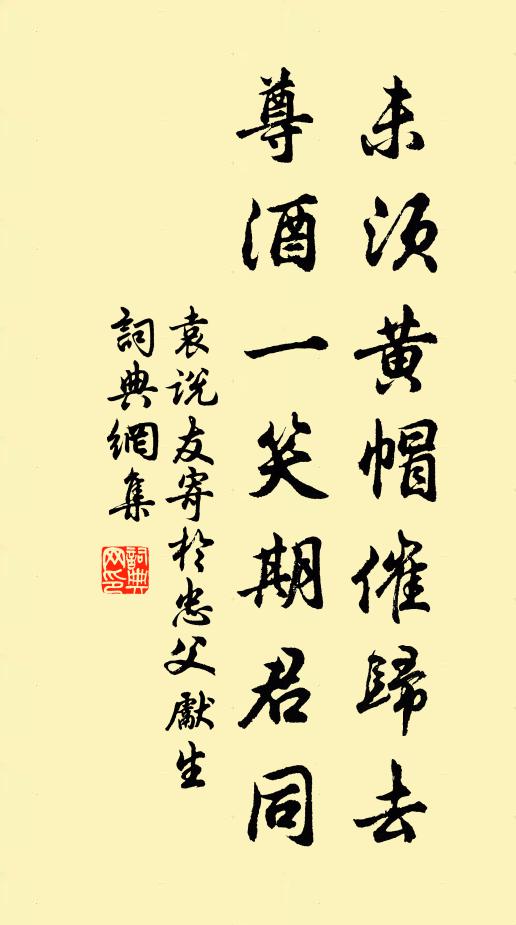 未須黄帽催歸去
尊酒一笑期君同
袁说友寄於忠父獻生
詞典網集
詞典
网印